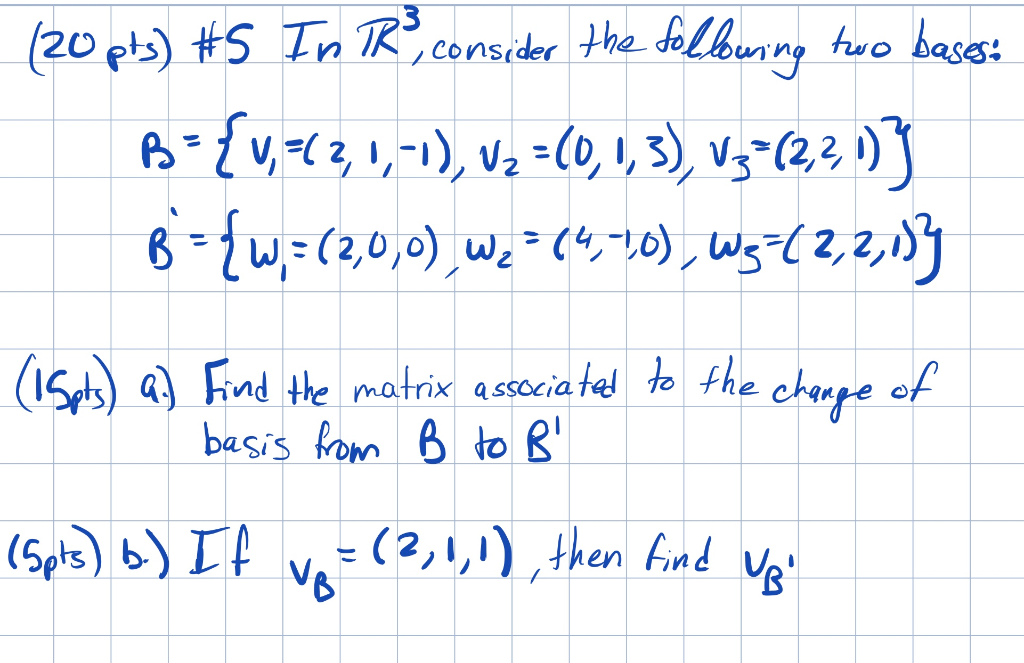 (20 pts) #5 In ℝ³, consider the following two bases:
B = { v₁ = (2, 1, -1), v₂ = (0, 1, 3), v₃ = (2, 2, 1) }
B' = { w₁ = (2, 0, 0), w₂ = (4, -1, 0), w₃ = (2, 2, 1) }
(15pts) a.) Find the matrix associated to the change of
basis from B to B'
(5pts) b.) If v_B = (2, 1, 1), then find v_B'